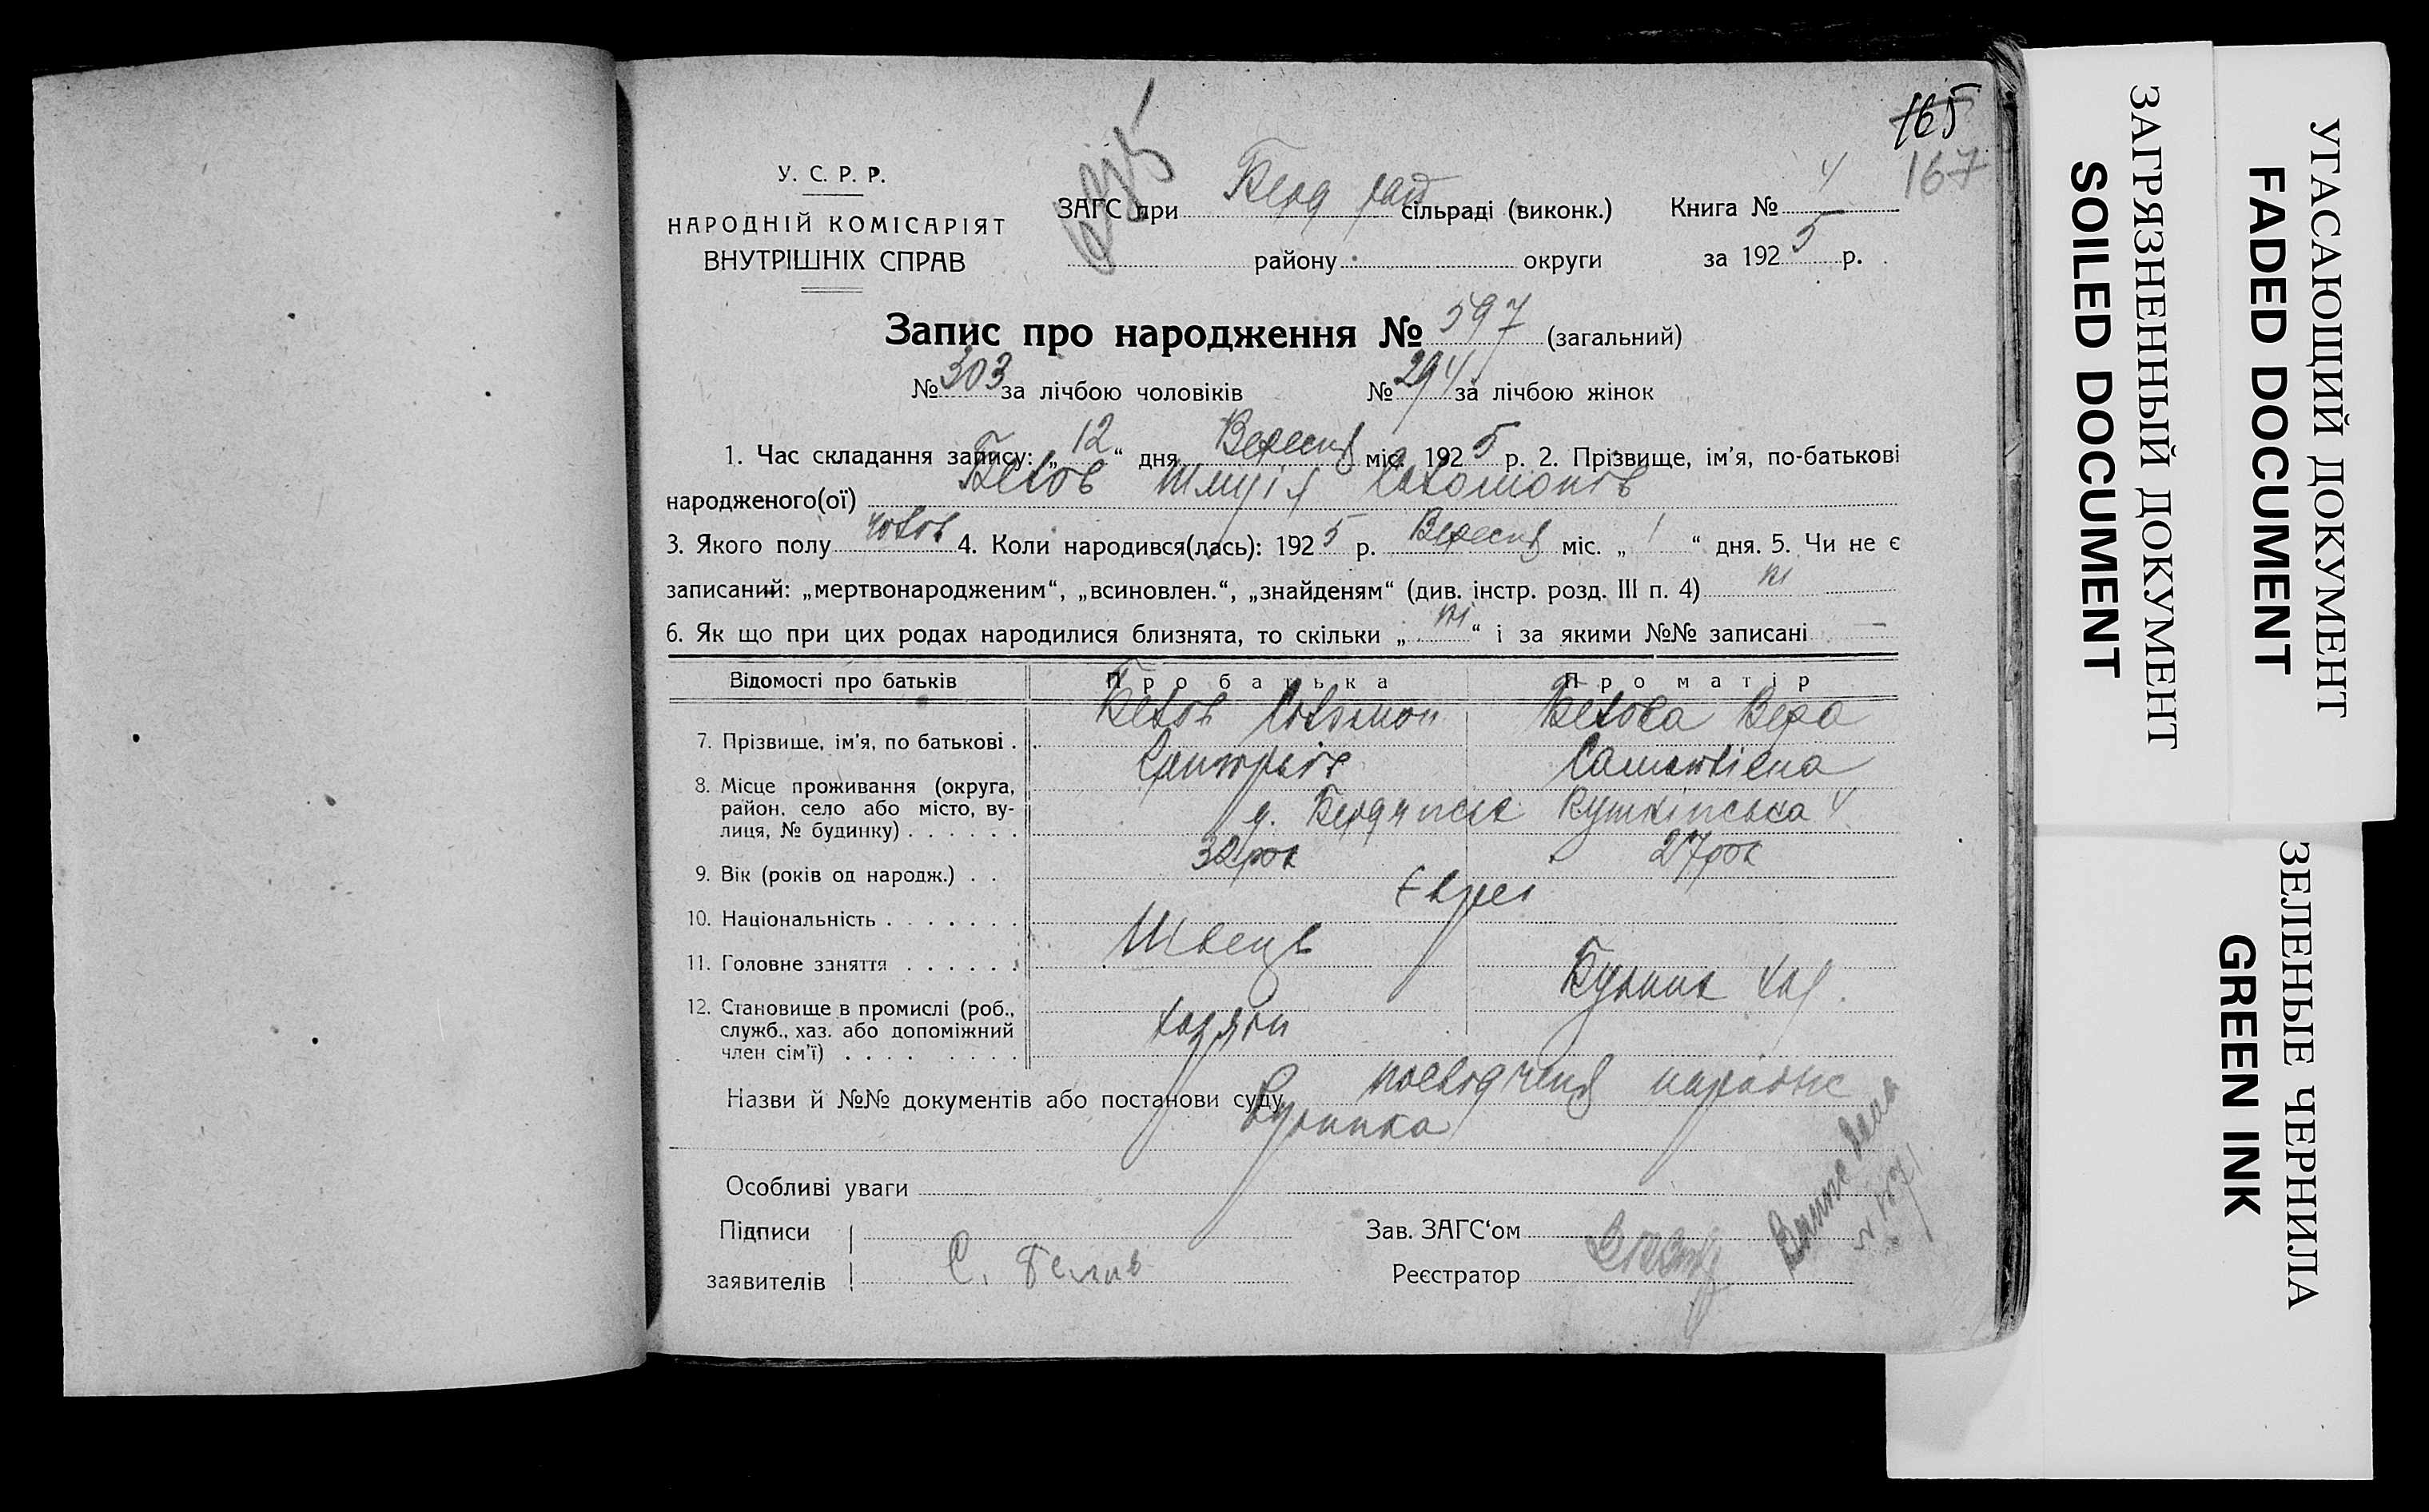 165
167
У. С. Р. Р.
НАРОДНІЙ КОМІСАРІЯТ
ВНУТРІШНІХ СПРАВ
ЗАГС при Берд рай сільраді (виконк.) Книга № 4
району округи за 1925 р.
Запис про народження № 597 (загальний)
№ 303 за лічбою чоловіків № 294 за лічбою жінок
1. Час складання запису: „12“ дня Вересня міс. 1925 р. 2. Прізвище, ім’я, по-батькові
народженого(ої) Белов
3. Якого полу чолов 4. Коли народився(лась): 1925 р. Вересня міс. „1“ дня. 5. Чи не є
записаний: „мертвонародженим“, „всиновлен.“, „знайденям“ (див. інстр. розд. III п. 4) ні
6. Як що при цих родах народилися близнята, то скільки „ні“ і за якими №№ записані —
Відомості про батьків Про батька Про матір
7. Прізвище, ім’я, по батькові . Белов Соломон Белова Вера
8. Місце проживання (округа, район, село або місто, вулиця, № будинку) . . . . . . Бердянськ Пушкінська 4
9. Вік (років од народж.) . . 32 рок 27 рок
10. Національність . . . . . . . Євреї
11. Головне заняття . . . . . . Швець
12. Становище в промислі (роб., служб., хаз. або допоміжний член сім’ї) . . . . . . . . Хазяїн
Назви й №№ документів або постанови суду посвідченя
Особливі уваги
Підписи
заявителів
С. Белов
Зав. ЗАГС‘ом
Реєстратор
УГАСАЮЩИЙ ДОКУМЕНТ
FADED DOCUMENT
ЗАГРЯЗНЕННЫЙ ДОКУМЕНТ
SOILED DOCUMENT
ЗЕЛЕНЫЕ ЧЕРНИЛА
GREEN INK